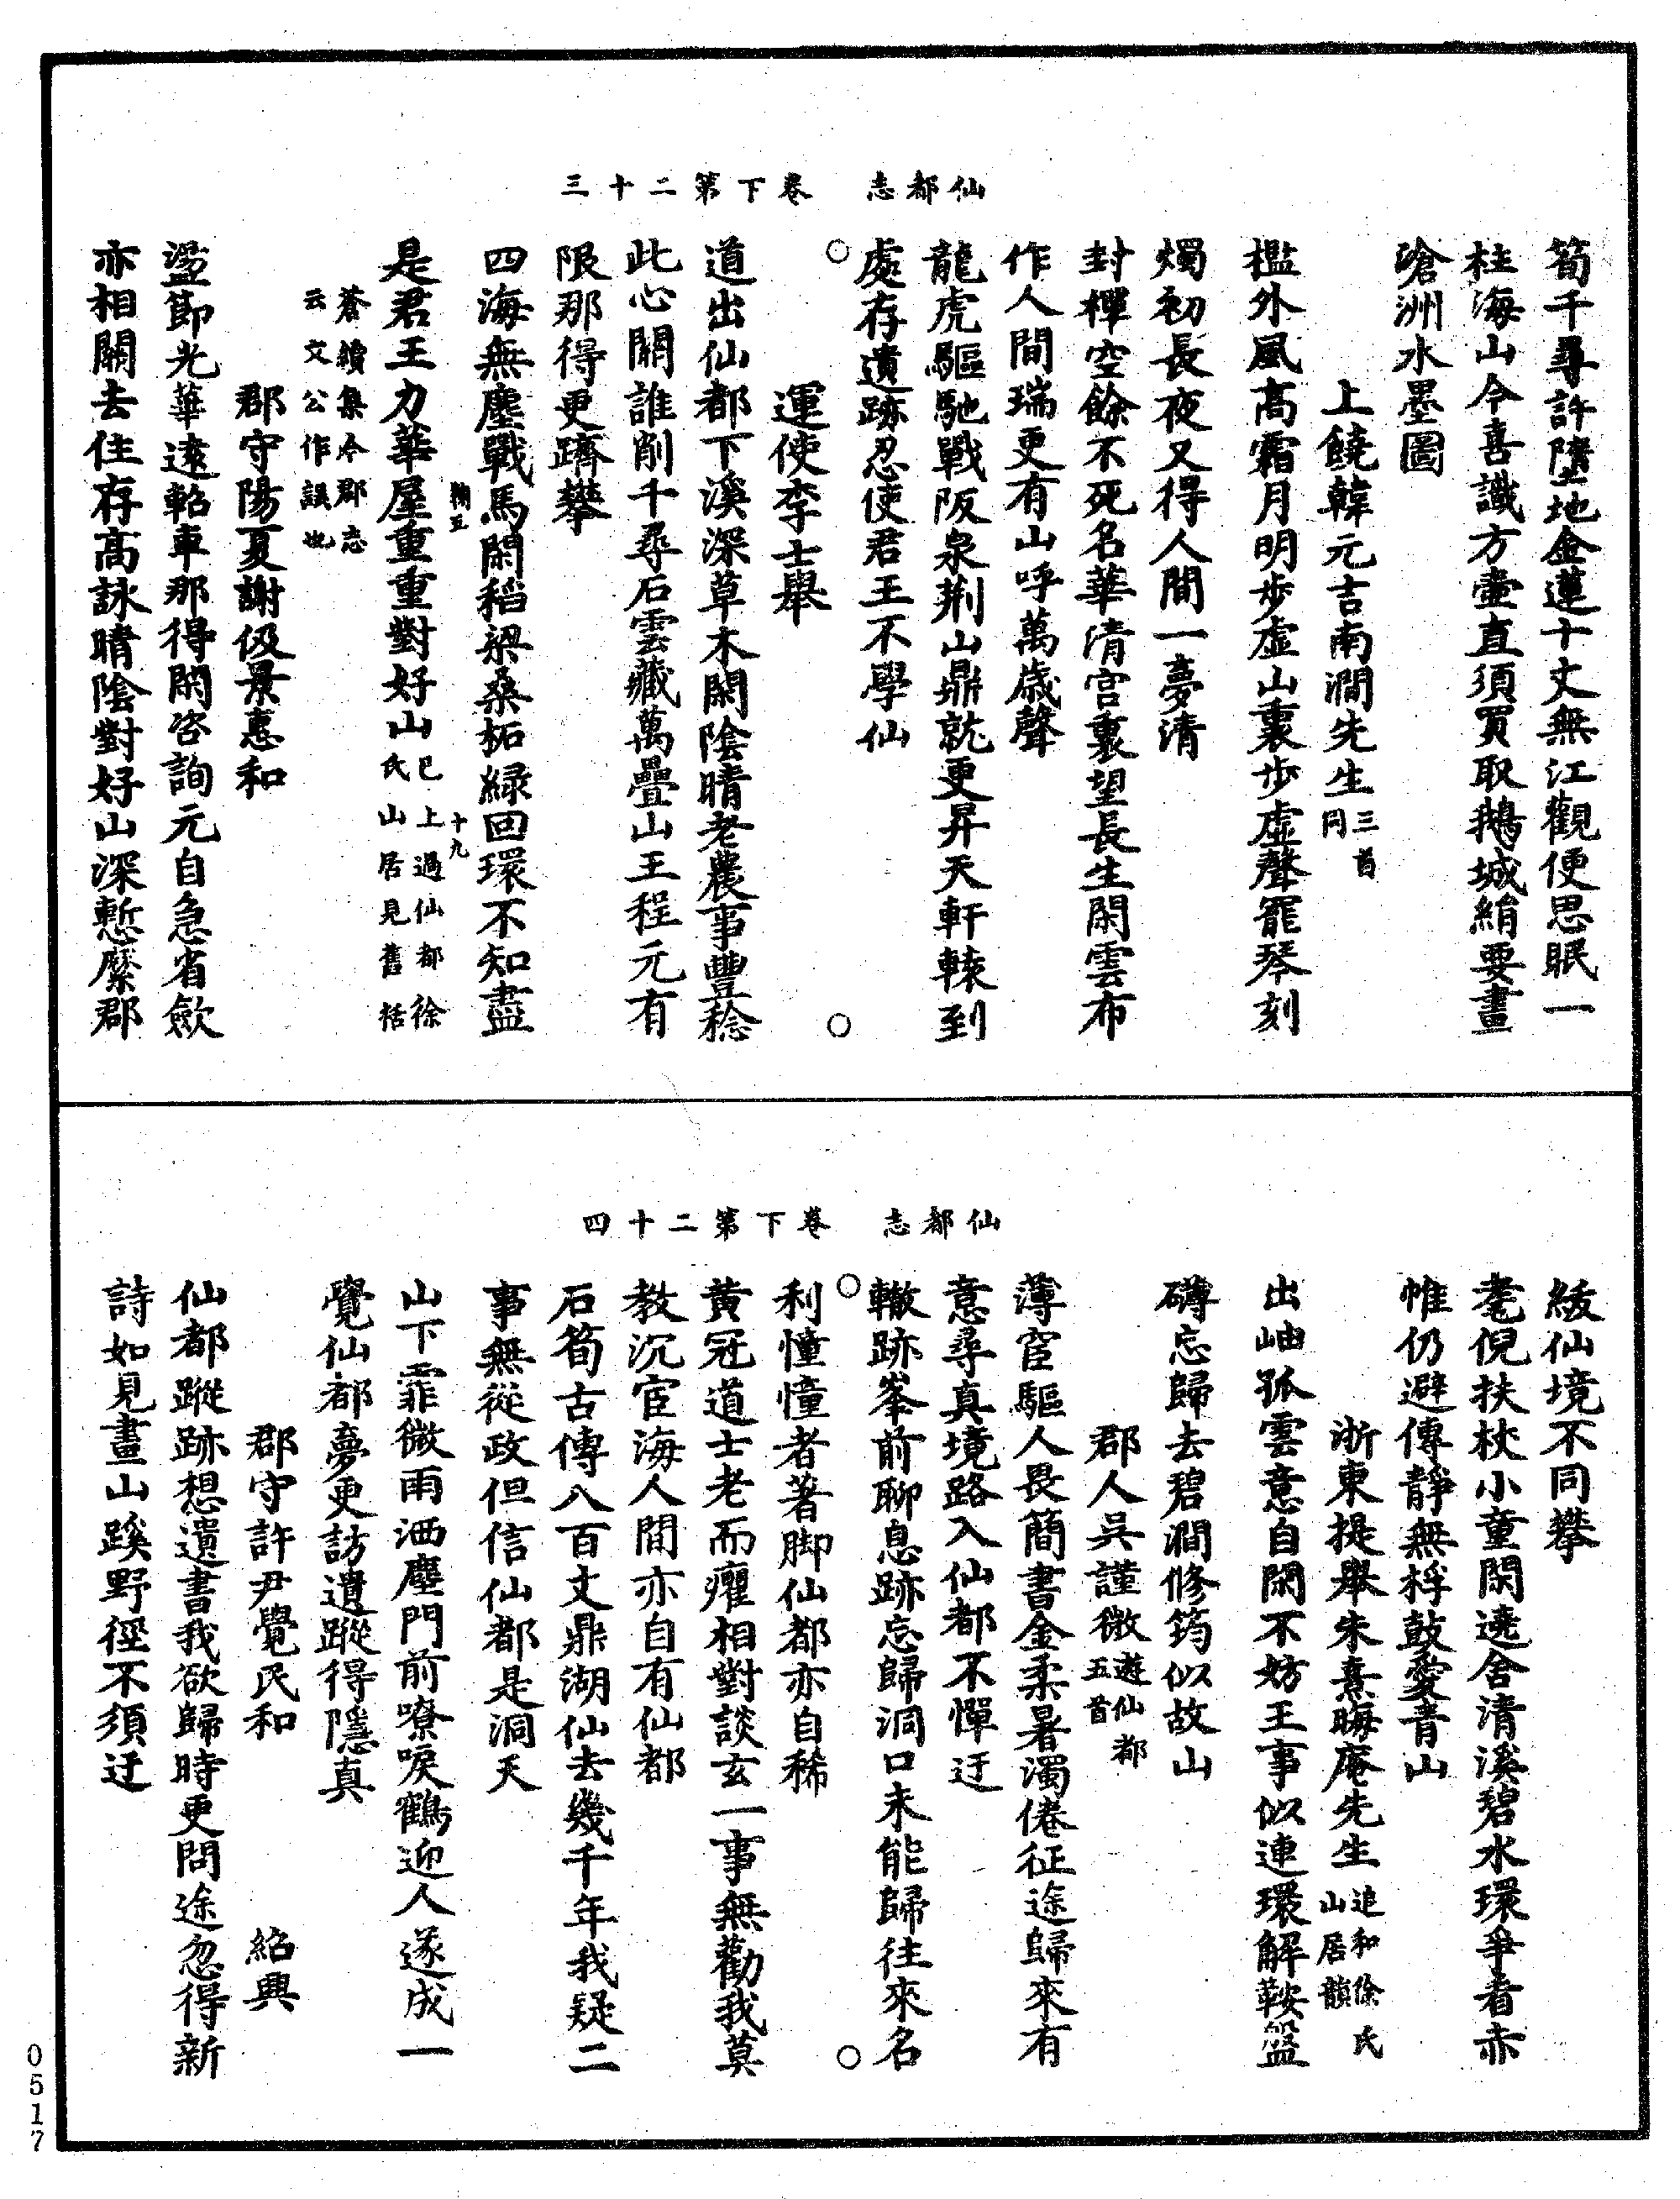 仙都志　卷下第二十三
筍千尋許墮地金蓮十丈無江觀便思眠一
柱海山今喜識方壺直須買取鵝城絹要畫
滄洲水墨圖
上饒韓元吉南澗先生三首同
檻外風高霜月明步虛山裏步虛聲罷琴刻
燭初長夜又得人間一夢清
封禪空餘不死名華清宮裏望長生閑雲布
作人間瑞更有山呼萬歲聲
龍虎驅馳戰阪泉荆山鼎就更昇天軒轅到
處存遺跡忍使君王不學仙
運使李士舉
道出仙都下溪深草木閑陰晴老農事豐稔
此心關誰削千尋石雲藏萬疊山王程元有
限那得更躋攀
四海無塵戰馬閑稻粱桑柘緑回環不知盡
鞠五　十九
是君王力華屋重重對好山已上過仙都徐氏山居見舊括
蒼續集今郡志云文公作誤也
郡守陽夏謝伋景惠和
盪節光華遠軺車那得閑咨詢元自急省歛
亦相關去住存高詠晴陰對好山深慙縻郡
仙都志　卷下第二十四
綬仙境不同攀
耄倪扶杖小童閑遶舍清溪碧水環爭看赤
帷仍避傳靜無桴鼓愛青山
浙東提舉朱熹晦庵先生追和徐氏山居韻
出岫孤雲意自閑不妨王事似連環解鞍盤
礴忘歸去碧澗修筠似故山
郡人吳謹微遊仙都五首
薄宦驅人畏簡書金柔暑濁倦征途歸來有
意尋真境路入仙都不憚迂
轍跡峯前聊息跡忘歸洞口未能歸往來名
利憧憧者著脚仙都亦自稀
黃冠道士老而癯相對談玄一事無勸我莫
教沉宦海人間亦自有仙都
石筍古傳八百丈鼎湖仙去幾千年我疑二
事無從政但信仙都是洞天
山下霏微雨洒塵門前嘹唳鶴迎人遂成一
覺仙都夢更訪遺蹤得隱真
郡守許尹覺民和　紹興
仙都蹤跡想遺書我欲歸時更問途忽得新
詩如見畫山蹊野徑不須迂
0517